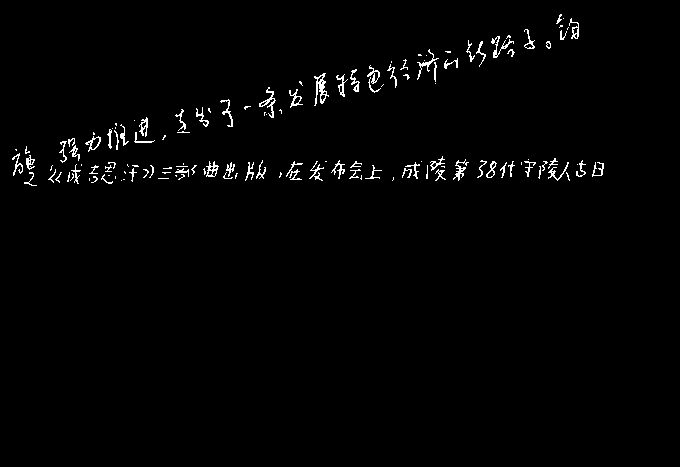 强力推进,走出了一条发展特色经济的新路子。
《成吉思汗》三部曲出版,在发布会上,成陵第38代守陵人古日